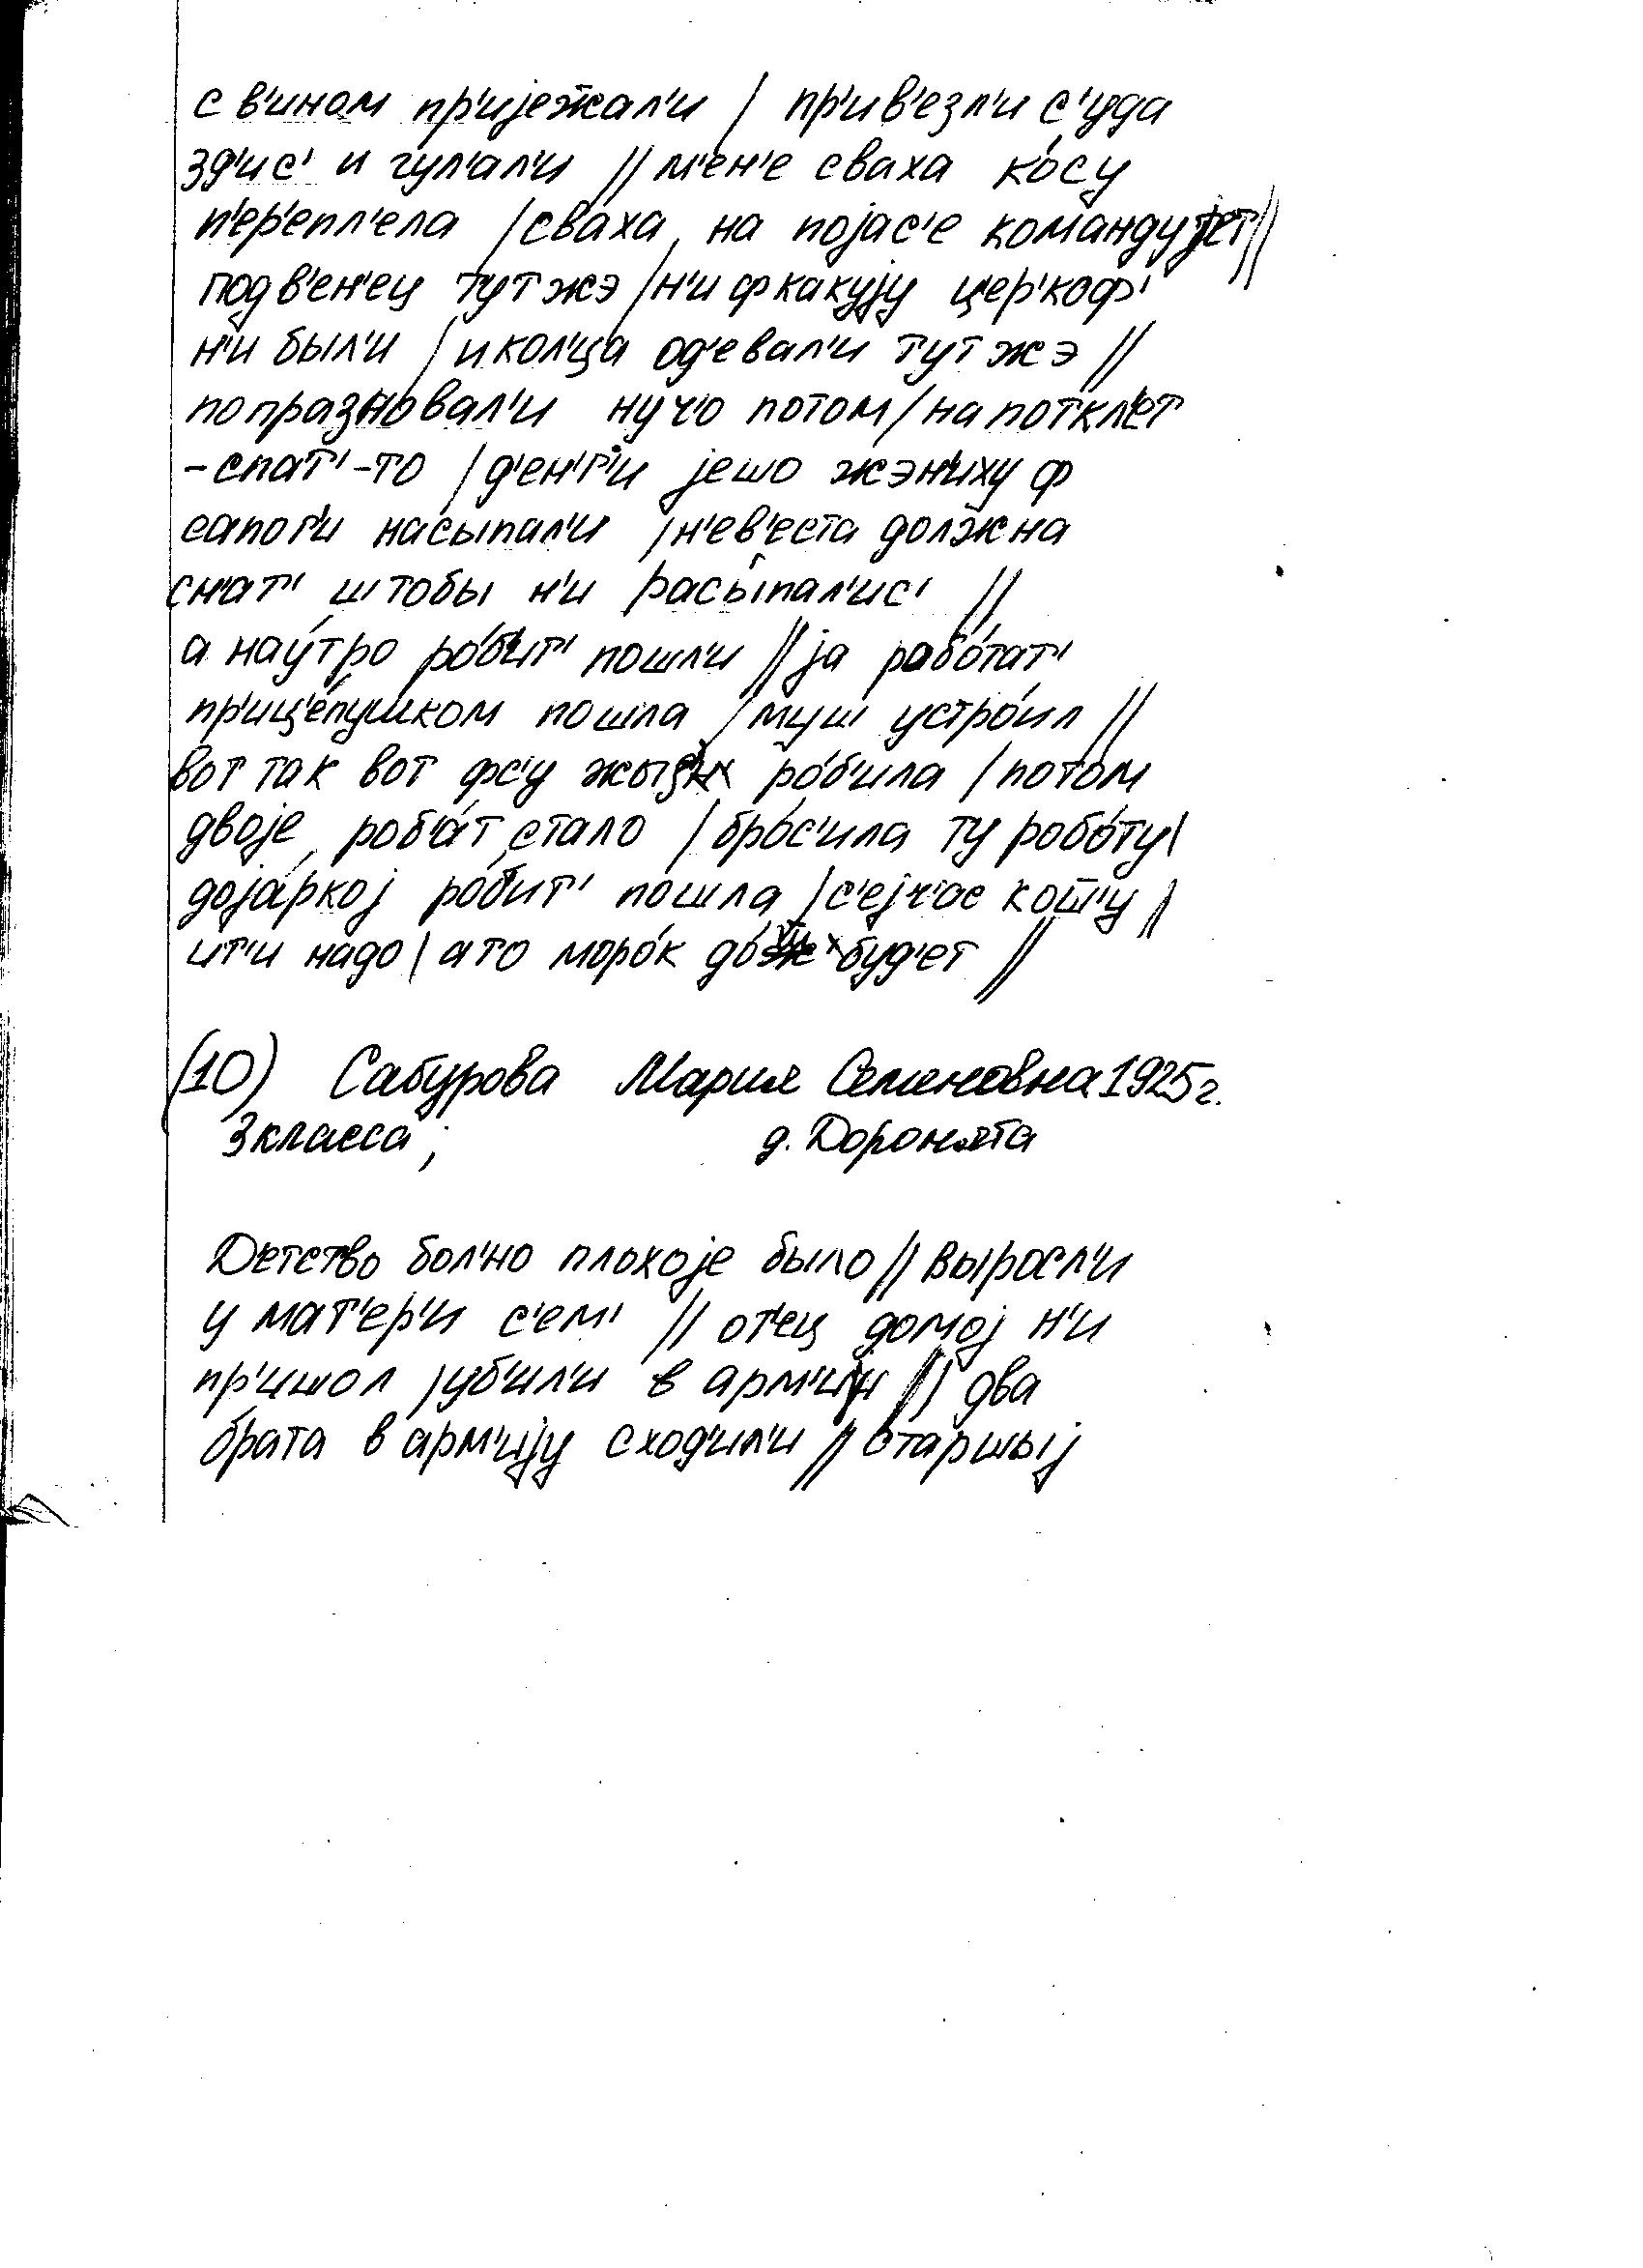 с в'ином пр'ијежал'и / пр'ив'езл'и с'уда
зд'ис' и гул'ал'и // м'ен'е сваха ко́су
п'ер'епл'ела / сваха на појас'е командујет //
подв'ен'ец тут жэ / н'и ф какују цер'коф'
н'и был'и / и кол'ца од'евал'и тут жэ //
попразновал'и ну ч'о потом / на поткл'ет
-спат'-то / д'ен'г'и јешо жэн'иху ф
сапог'и насыпал'и / н'ев'еста должна
сн'ат' штобы н'и расы́пал'ис' //
а нау́тро ро́б'ит' пошл'и // ја рабо́тат'
пр'иц'е́пушком пошла / муш устро́ил //
вот так вот фс'у жыз'н' ро́б'ила / потом
двоје роб'а́т стало / бро́с'ила ту робо́ту /
доја́ркој ро́б'ит' пошла / с'ејч'ас кош'у //
ит'и надо / а то моро́к до́ш' буд'ет //
(10) Сабурова Мария Семеновна 1925 г.
3 класса; д. Доронята
Детство бол'но плохоје было // выросл'и
у мат'ер'и с'ем' // от'ец домој н'и
пр'ишол / уб'ил'и в арм'ији // два
брата в арм'ију сход'ил'и // старшыј